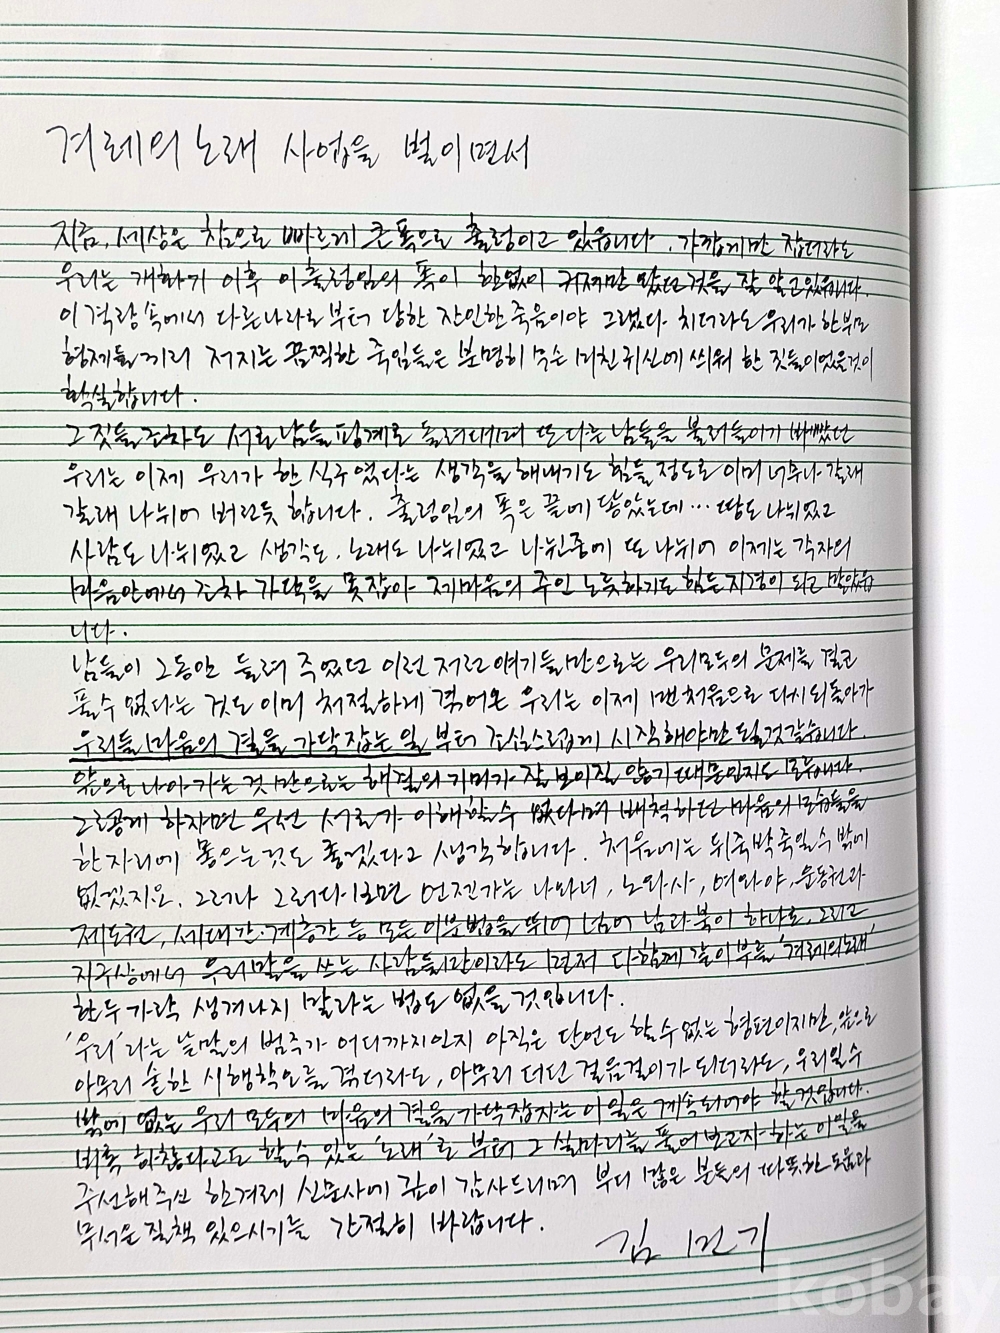 겨레의 노래 사업을 벌이면서
지금, 세상은 참으로 빠르게 큰 폭으로 출렁이고 있습니다. 가깝게만 잡더라도
우리는 개화기 이후 이 출렁임의 폭이 한없이 커져만 왔던 것을 잘 알고 있습니다.
이 격랑 속에서 다른나라로 부터 당한 잔인한 죽음이야 그렇다 치더라도 우리가 한부모
형제들끼리 저지른 끔찍한 죽임들은 분명히 무슨 미친 귀신에 씌워 한 짓들이었을것이
확실합니다.
그 짓들조차도 서로 남들 핑계로 돌려대며 또 다른 남들을 불러들이기 바빴던
우리는 이제 우리가 한 식구였다는 생각을 해내기도 힘들 정도로 이미 너무나 갈래
갈래 나뉘어 버린듯 합니다. 출렁임의 폭은 끝에 닿았는데… 땅도 나뉘였고
사람도 나뉘였고 생각도, 노래도 나뉘였고 나뉜중에 또 나뉘어 이제는 각자의
마음안에서 조차 가닥을 못잡아 제마음의 주인 노릇하기도 힘든 지경이 되고 말았습
니다.
남들이 그동안 들려 주었던 이런 저런 얘기들만으로는 우리모두의 문제를 결코
풀수 없다는 것도 이미 처절하게 겪어온 우리는 이제 맨처음으로 다시 되돌아가
우리들 마음의 결을 가닥잡는 일 부터 조심스럽게 시작해야만 될것같습니다.
앞으로 나아가는 것만으로는 해결의 기미가 잘 보이질 않기 때문인지도 모릅니다.
그렇게 하자면 우선 서로가 이해할수 없다며 배척하던 마음의 모습들을
한자리에 몽으는것도 좋겠다고 생각합니다. 처음에는 뒤죽박죽일수 밖에
없겠지요. 그러나 그러다보면 언젠가는 나와너, 노와사, 여와야, 운동권과
제도권, 세대간·계층간 등 모든 이분법을 뛰어 넘어 남과 북이 하나로, 그리고
지구상에서 우리말을 쓰는 사람들만이라도 먼저 다함께 같이 부를 '겨레의 노래'
한두가락 생겨나지 말라는 법도 없을 것입니다.
'우리'라는 낱말의 범주가 어디까지인지 아직은 단언도 할수없는 형편이지만, 앞으로
아무리 숱한 시행착오를 겪더라도, 아무리 더딘 걸음걸이가 되더라도, 우리일수
밖에 없는 우리 모두의 마음의 결을 가닥잡자는 이일은 계속되어야 할것입니다.
비록 하찮다고도 할수 있는 '노래'로 부터 그 실마리를 풀어보고자 하는 이일을
주선해주신 한겨레 신문사에 깊이 감사드리며 부디 많은 분들의 따뜻한 도움과
무서운 질책 있으시기를 간절히 바랍니다.
김민기
kobay